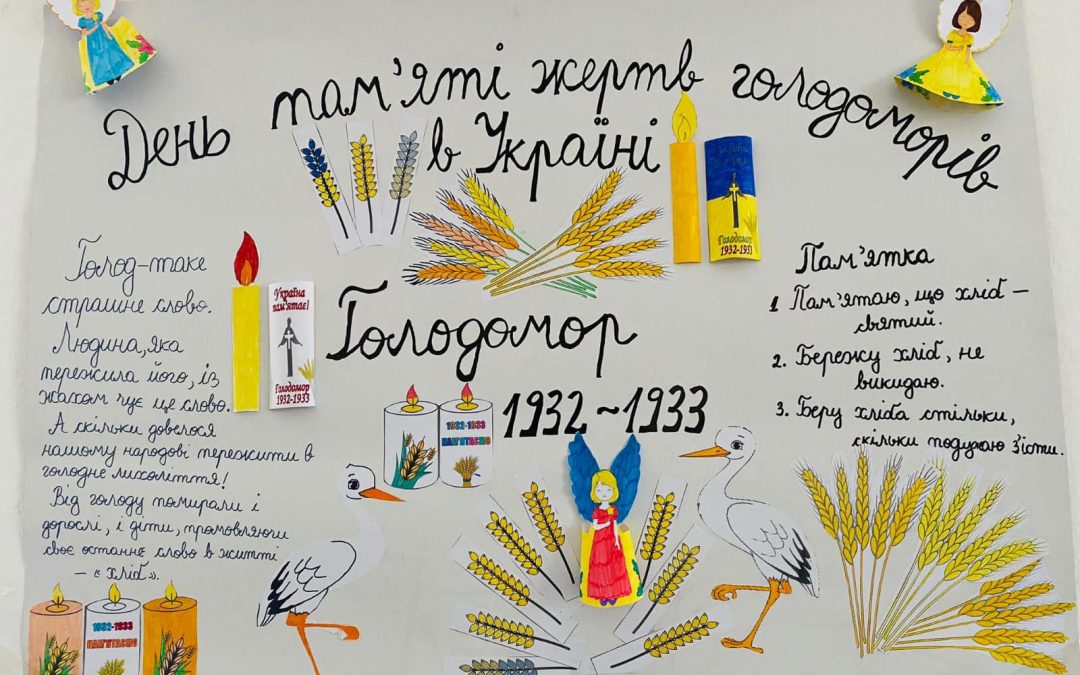 День пам'яті жертв голодоморів
в Україні
Голодомор
1932~1933
Голод-таке
страшне слово.
Людина, яка
пережила його, із
жахом чує це слово.
А скільки довелося
нашому народові пережити в
голодне лихоліття!
Від голоду помирали і
дорослі, і діти, промовляючи
своє останнє слово в житті
– «хліб».
Україна
пам'ятає!
Голодомор
1932-1933
Голодомор
1932-1933
1932-1933
ПАМ'ЯТАЄМО
1932-1933
ПАМ'ЯТАЄМО
Пам'ятка
1. Пам'ятаю, що хліб –
святий.
2. Бережу хліб, не
викидаю.
3. Беру хліба стільки,
скільки подужаю з'їсти.